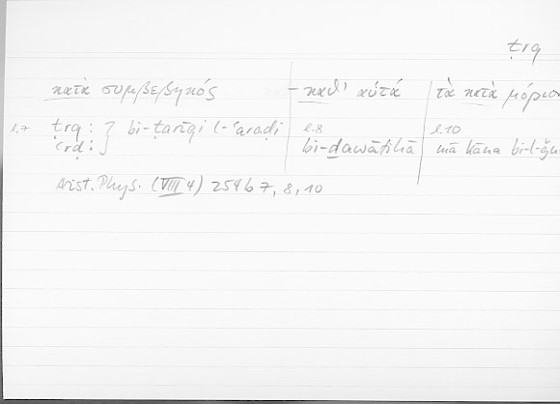 ṭrq
κατὰ συμβεβηκός – καθ' αὑτά τὰ κατὰ μόριον
l.7 ṭrq : } bi-ṭarīqi l-ʿaraḍi l.8 l.10
ʿrḍ : bi-ḏawātihā mā kāna bi-l-ǧu
Arist. Phys. (VIII 4) 254b 7, 8, 10